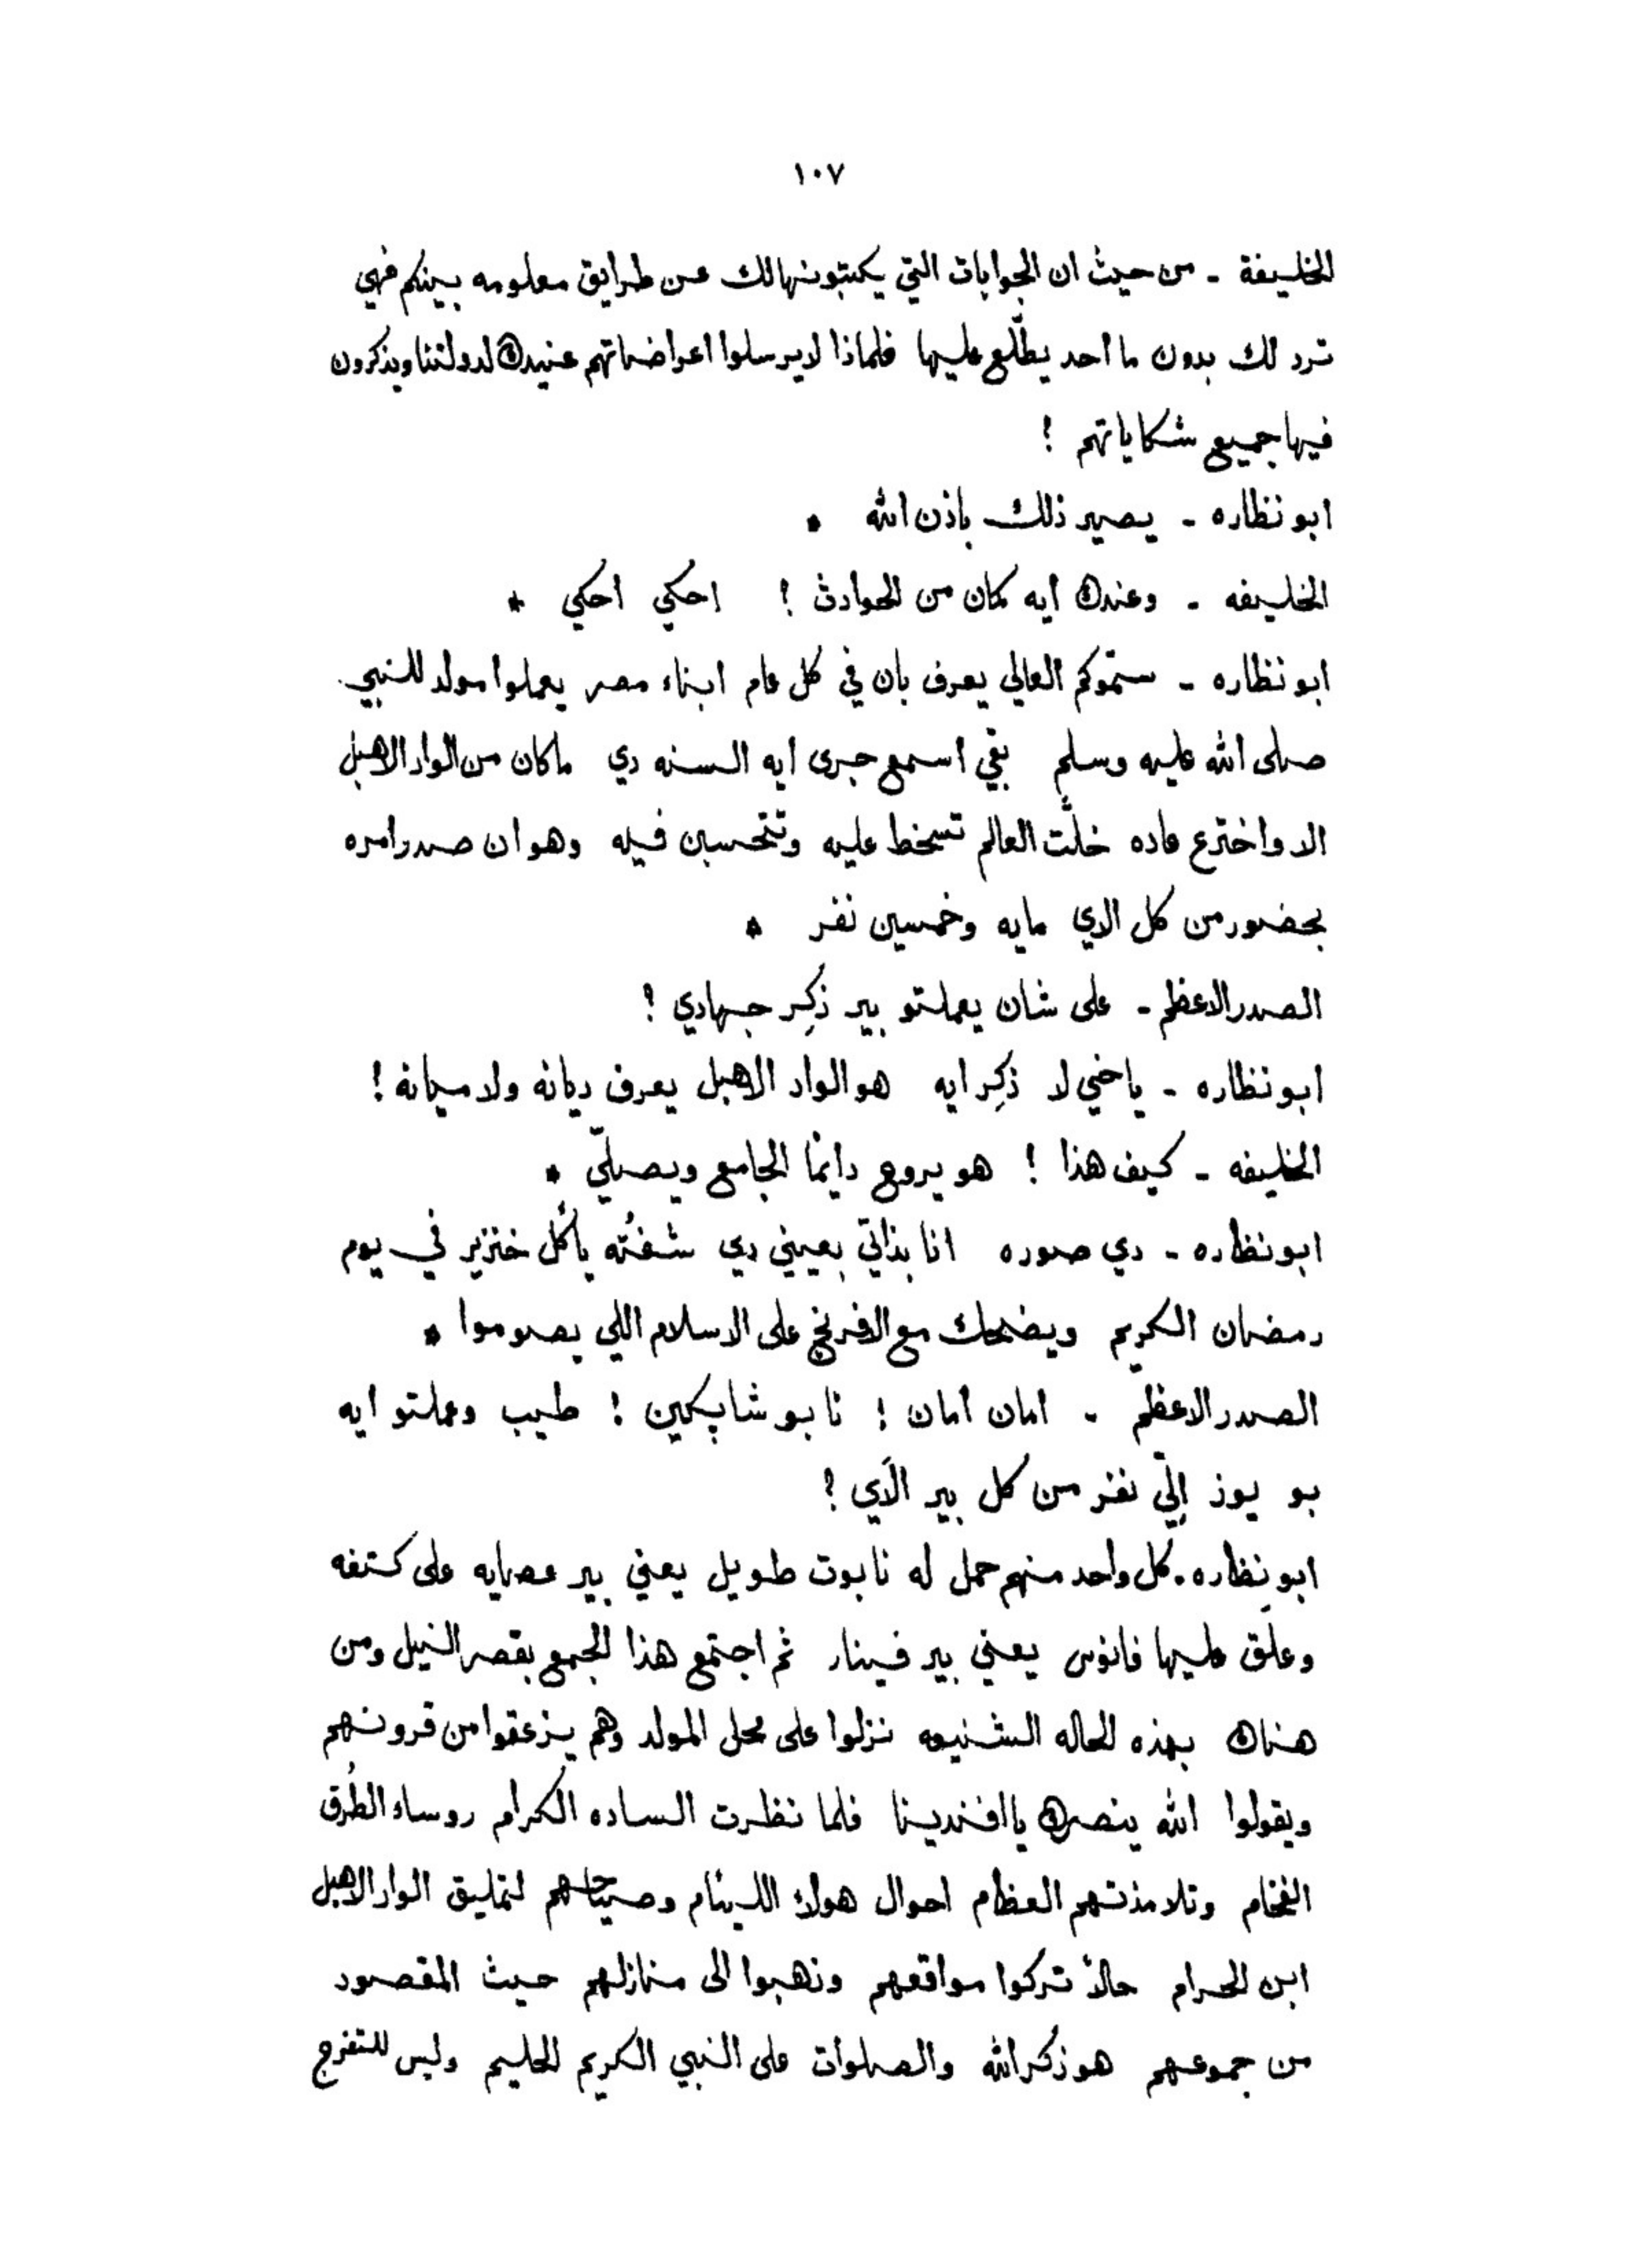 ١٠٧
الخليفة - من حيث ان الجوابات التي يكتبونها لك عن طرايق معلومه بينكم فهي
ترد لك بدون ما احد يطّلع عليها فلماذا لا يرسلوا اعراضاتهم عنيدك لدولتنا ويذكرون
فيها جميع شكاياتهم !
ابو نظاره - يصير ذلك باذن الله *
الخليفه - وعندك ايه كمان من الحوادث ! احكي احكي *
ابو نظاره - سموّكم العالي يعرف بان في كل عام ابناء مصر يعملوا مولد للنبي
صلى الله عليه وسلم بقي اسمع جرى ايه السنه دي ماكان من الواد الاهبل
الا واخترع عاده خلّت العالم تسخط عليه وتتحسبن فيه وهو ان صدر امره
بحضور من كل الاي مايه وخمسين نفر *
الصدر الاعظم - على شان يعملتو بير ذكِر جهادي ؟
ابو نظاره - ياخي لا ذكِر ايه هو الواد الاهبل يعرف ديانه ولا ميانه !
الخليفه - كيف هذا ! هو يروح دايمًا الجامع ويصلّي *
ابو نظاره - دي صوره انا بذاتي بعيني دي شفتُه يأكُل خنزير في يوم
رمضان الكريم ويضحك مع الافرنج على الاسلام اللي يصوموا *
الصدر الاعظم - امان امان ! نا بو شابكين ! طيب وعملتو ايه
بو يوز اِلّي نفر من كل بير الَاي ?
ابو نظاره . كل واحد منهم حمل له نابوت طويل يعني بير عصايه على كتفه
وعلَّق عليها فانوس يعني بير فينار ثم اجتمع هذا الجمع بقصر النيل ومن
هناك بهذه الحاله الشنيعه نزلوا على محل المولد وهم يزعقوا من قرونهم
ويقولوا الله ينصرك يا افندينا فلما نظرت الساده الكرام روساء الطُرق
الفخام وتلامذتهم العظام احوال هولاء اللينام وصياحهم لتمليق الواد الاهبل
ابن الحرام حالاً تركوا مواقعهم وذهبوا الى منازلهم حيث المقصود
من جموعهم هو ذكر الله والصلوات على النبي الكريم الحليم وليس للتفرج